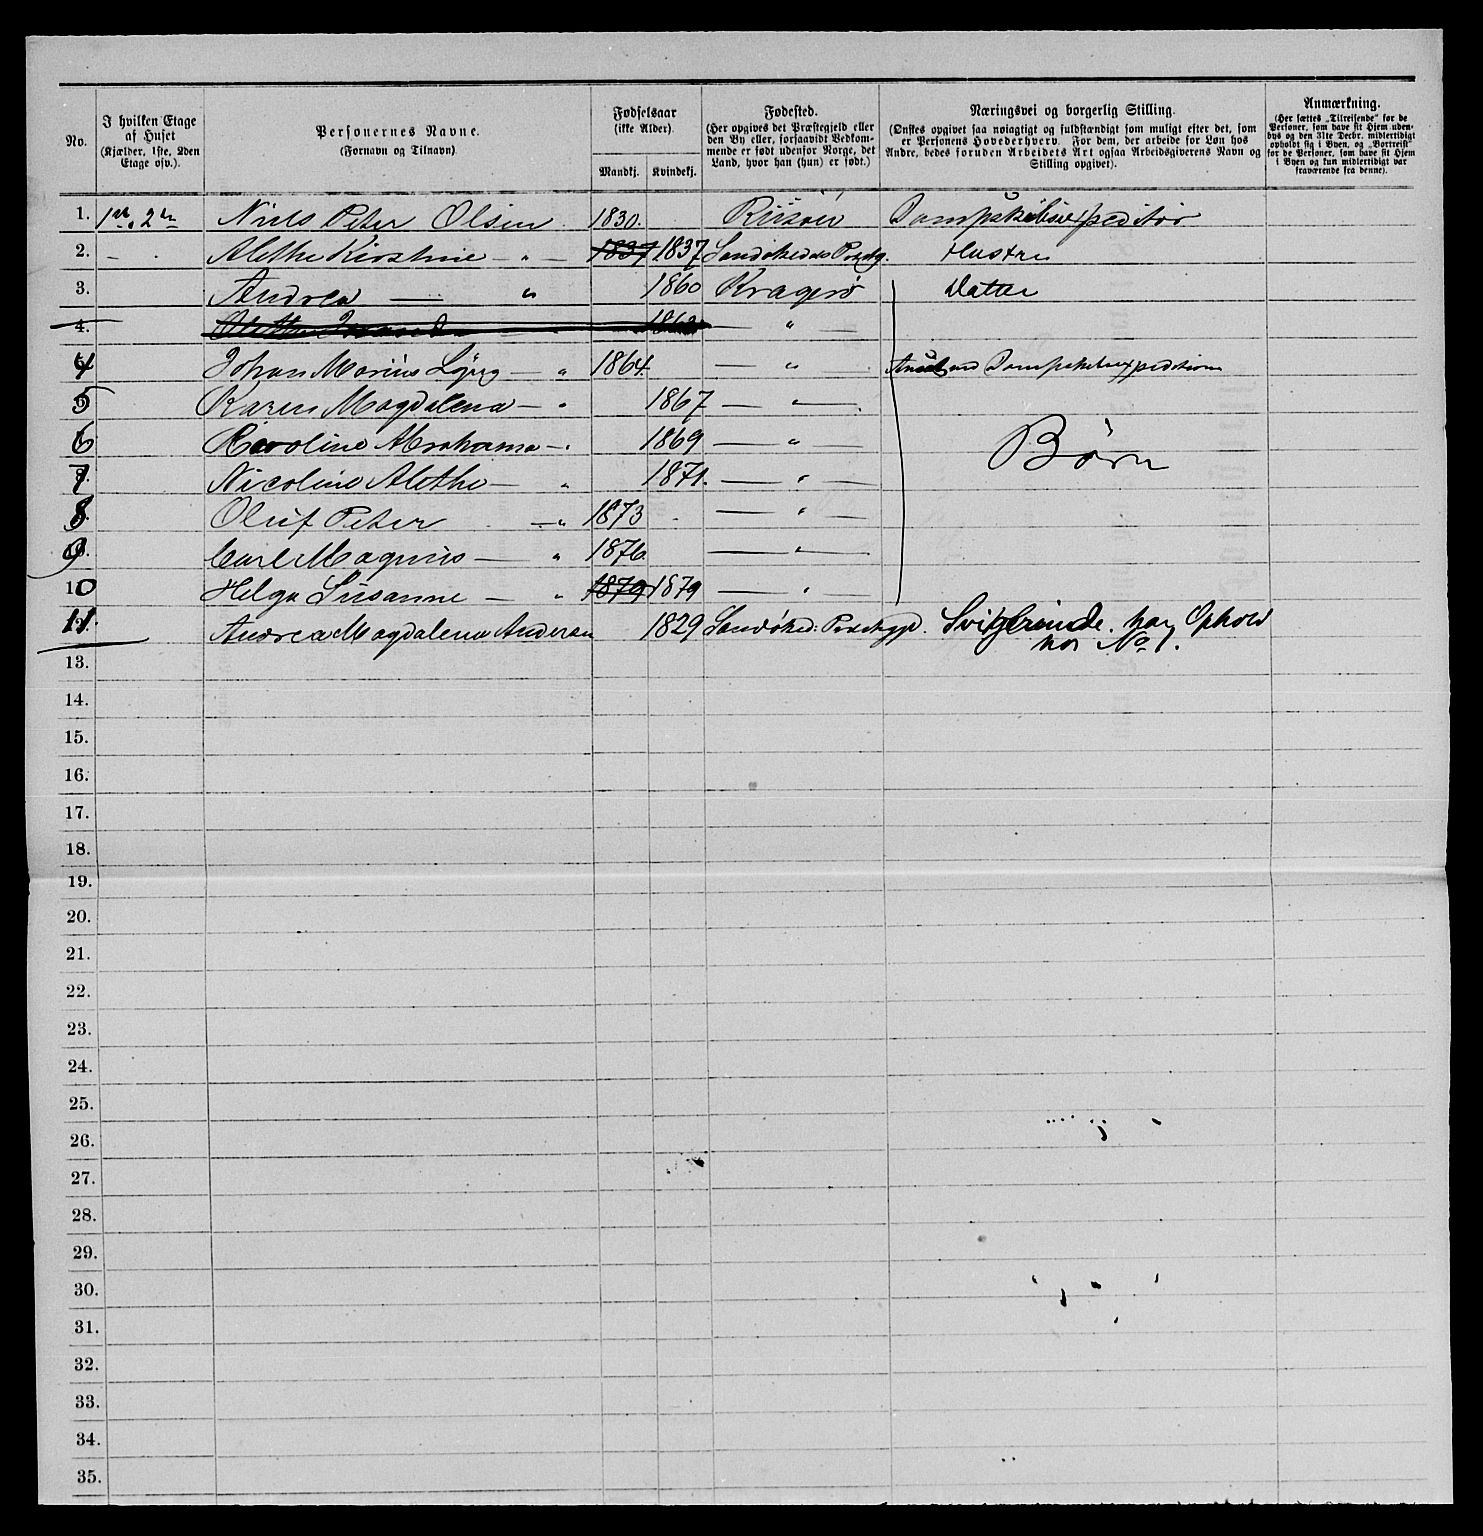 No.
I hvilken Etage
af Huset
(Kjælder, 1ste, 2den
Etage osv.).
Personernes Navne.
(Fornavn og Tilnavn)
Fødselsaar
(ikke Alder).
Mandkj. Kvindekj.
Fødested.
(Her opgives det Præstegjeld eller
den By eller, forsaavidt Vedkom-
mende er født udenfor Norge, det
Land, hvor han (hun) er født.)
Næringsvei og borgerlig Stilling.
(Ønskes opgivet saa nøiagtigt og fuldstændigt som muligt efter det, som
er Personens Hovederhverv. For dem, der arbeide for Løn hos
Andre, bedes foruden Arbeidets Art ogsaa Arbeidsgiverens Navn og
Stilling opgivet).
Anmærkning.
(Her sættes „Tilreisende" for de
Personer, som have sit Hjem uden-
bys og den 31te Decbr. midlertidigt
opholdt sig i Byen, og „Bortreist"
for de Personer, som have sit Hjem
i Byen og kun midlertidigt var
fraværende fra denne).
1. 1ste, 2den Niels Peter Olsen 1830. Riisøer Dampskibsexpeditør
2. – . Alethe Kirstine – „ – 1837 1837 Sandøkedals Præstg. Hustru
3. Andrea — „ 1860 Kragerø Datter
4. 1862 — „ —
4 Johan Marius Ljøig — „ 1864 — „ — Dampskibsexpeditionen
5 Karen Magdalena — „ 1867 — „ —
6 Karoline Abrahama — „ 1869 — „ — Børn
7 Nicoline Alethe — „ 1871. — „ —
8 Oluf Peter — „ 1873 — „ —
9 Carl Magnus — „ 1876 — „ —
10 Helga Susanne — „ 1879 1879 — „ —
11 Andrea Magdalena Andersen 1829 Sandøked: Præstegjd. Svigerinde. har Ophold
hos No 1.
13.
14.
15.
16.
17.
18.
19.
20.
21.
22.
23.
24.
25.
26.
27.
28.
29.
30.
31.
32.
33.
34.
35.